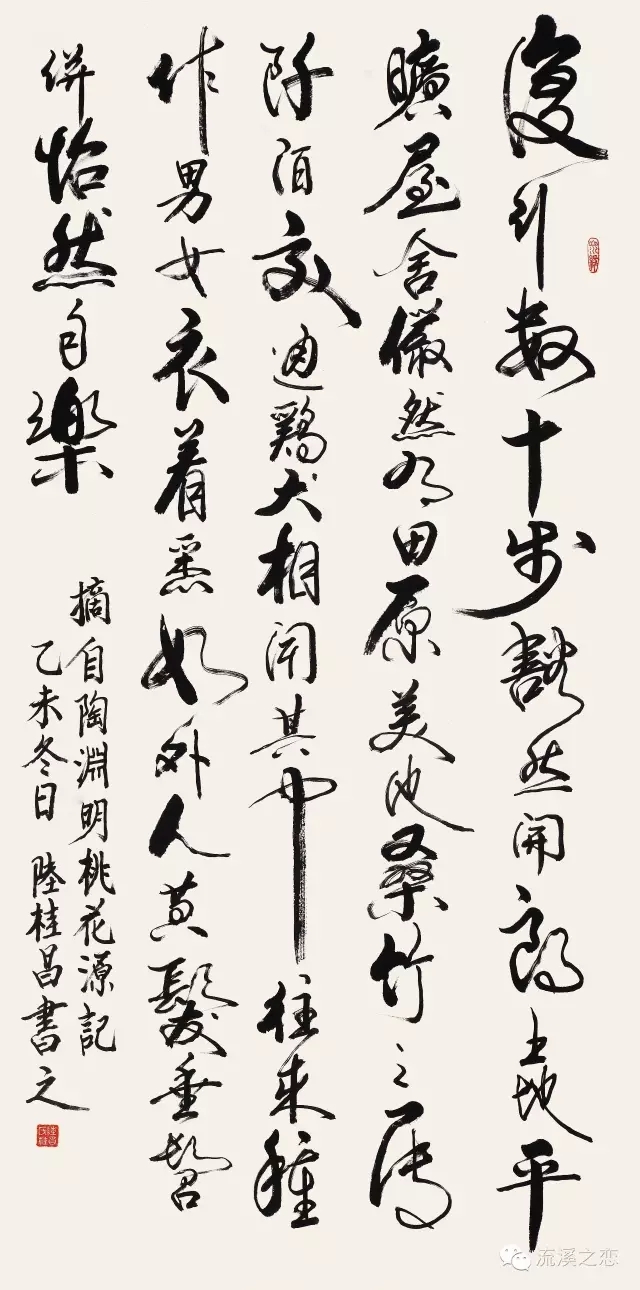 復行數十步豁然開朗土地平
曠屋舍儼然有田原美池桑竹之屬
阡陌交通鷄犬相聞其中往來種
作男女衣着悉如外人黃髮垂髫
併怡然自樂
摘自陶淵明桃花源記
乙未冬日 陸桂昌書之
流溪之恋